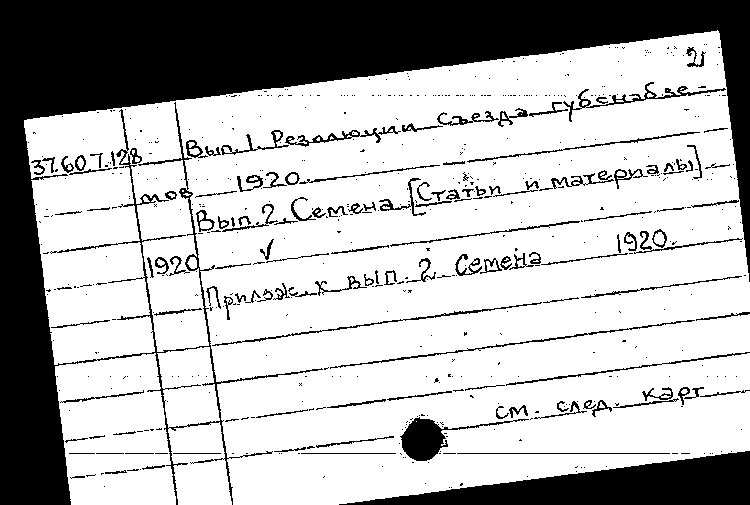 2
37.60.7.128 Вып. 1. Резолюции съезда губснабзе-
тов 1920.
Вып. 2. Семена [Статьи и материалы]
1920 1920.
Прилож. к вып. 2 Семена
см. след. карт